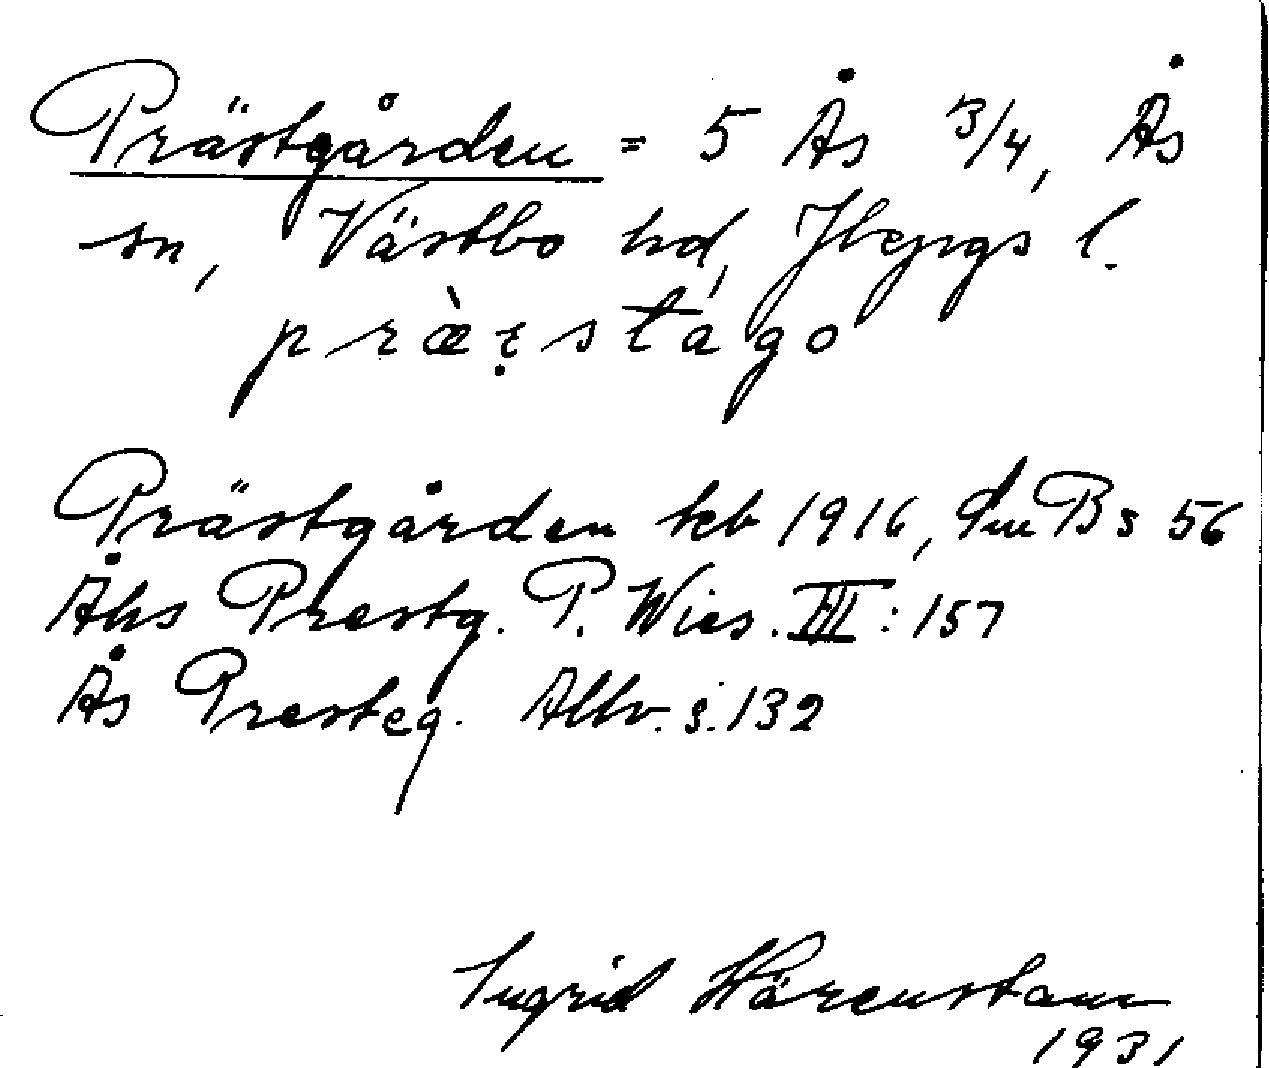 Prästgården = 5 Ås 3/4, Ås
sn, Västbo hd, Jbgs l.
præ̀ṛstágo
Prästgården kb 1916, Bs 56
Åhs Prestg. P. Wies. III: 157
Ås Presteg. Allv. s. 132
Ingrid Härenstam
1931